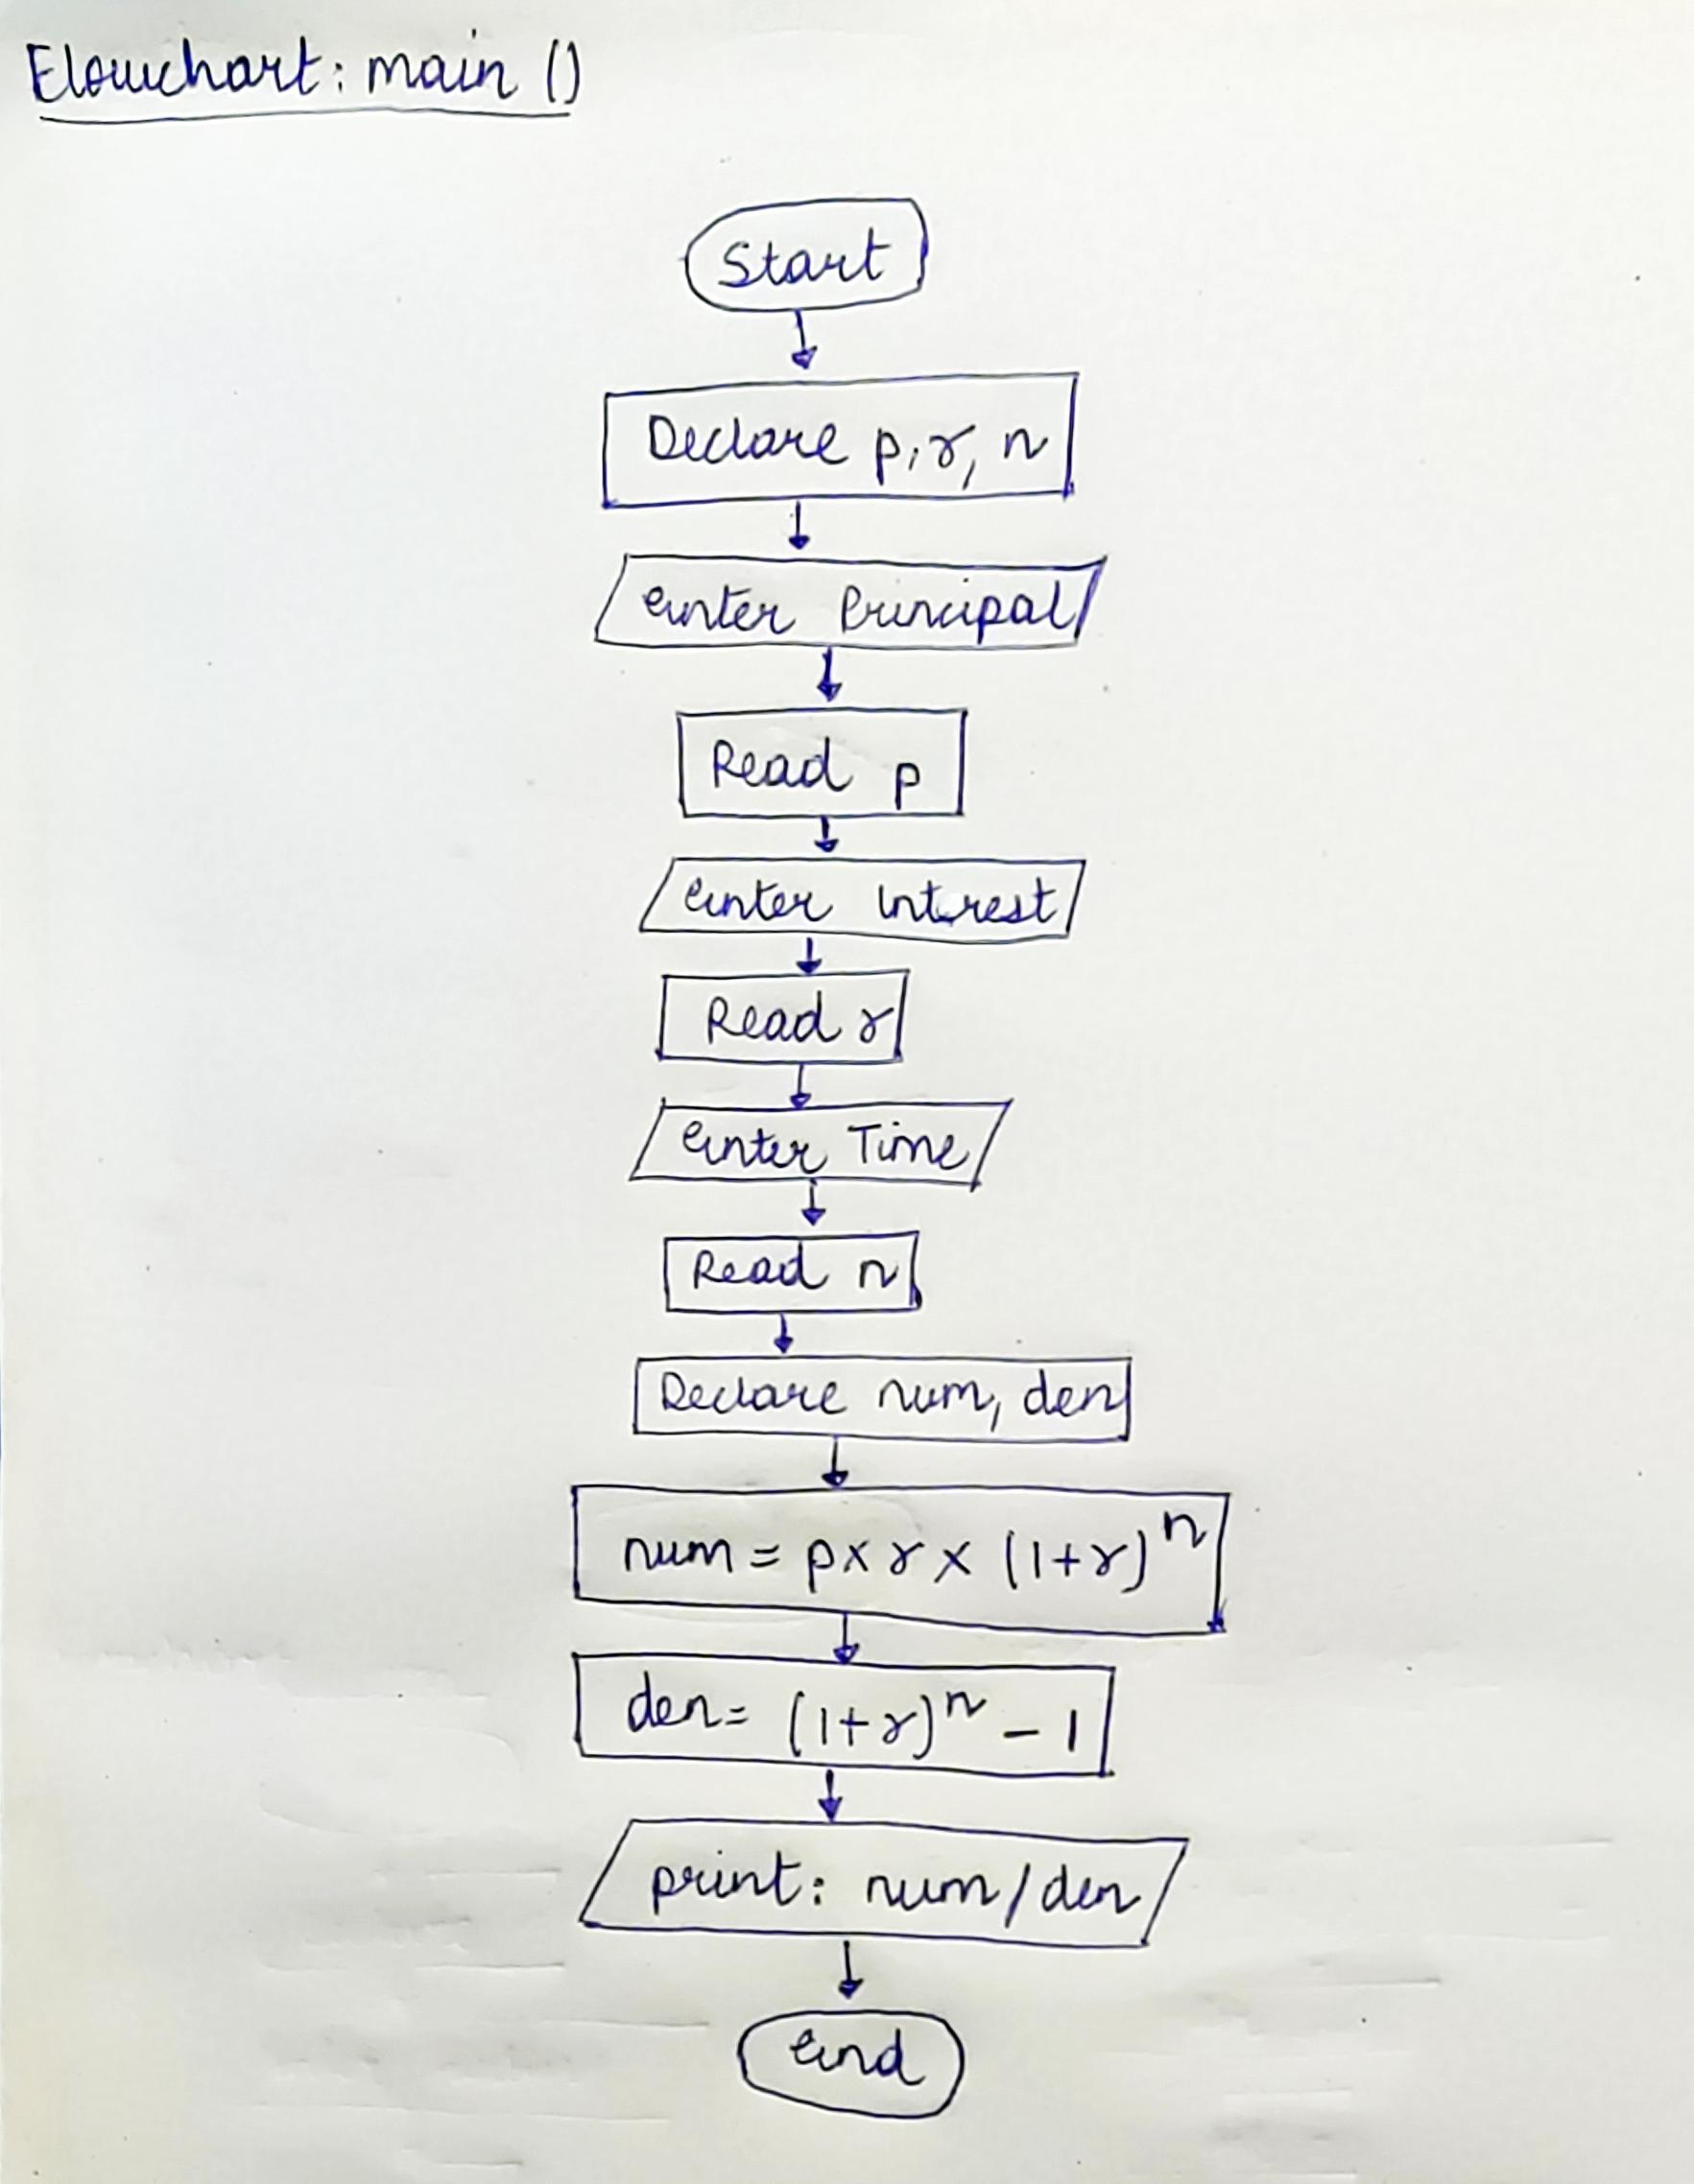 Flowchart: main ()
Start
Declare p, r, n
enter Principal
Read p
enter Intrest
Read r
enter Time
Read n
Declare num, den
num = p x r x (1+r)^n
den = (1+r)^n - 1
print: num/den
end